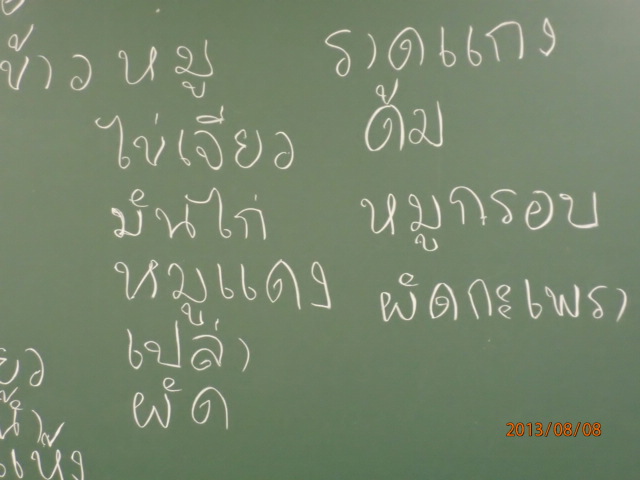 ข้าว หมู
ไข่เจียว
มันไก่
หมูแดง
เปล่า
ผัด
ราดแกง
ต้ม
หมูกรอบ
ผัดกะเพรา
น้ำ
แห้ง
2013/08/08